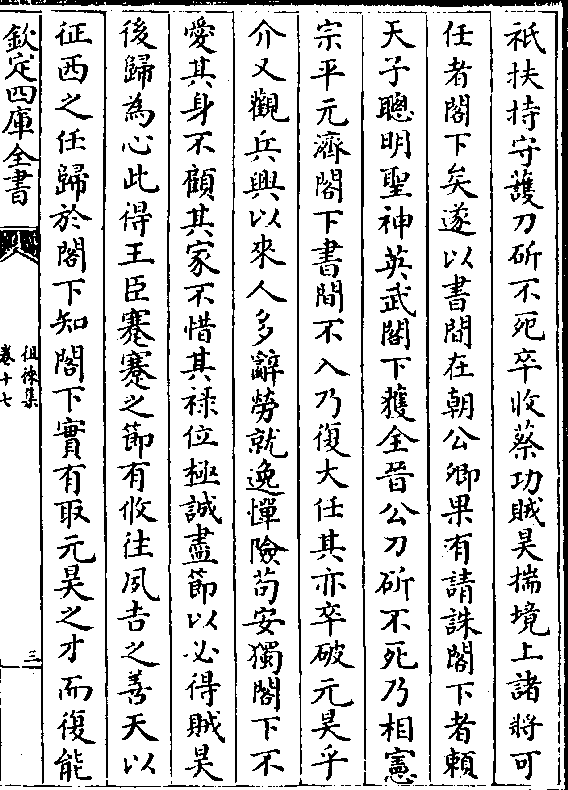 祇扶持守護刀斫不死卒收蔡功賊昊揣境上諸將可
任者閤下矣遂以書間在朝公卿果有請誅閤下者賴
天子聰明聖神英武閤下獲全晉公刀斫不死乃相憲
宗平元濟閤下書間不入乃復大任其亦卒破元昊乎
介又觀兵興以來人多辭勞就逸憚險苟安獨閤下不
愛其身不顧其家不惜其祿位極誠盡節以必得賊昊
後歸為心此得王臣蹇蹇之節有攸往夙吉之善天以
征西之任歸於閤下知閤下實有取元昊之才而復能
欽定四庫全書
徂徠集
卷十七
三